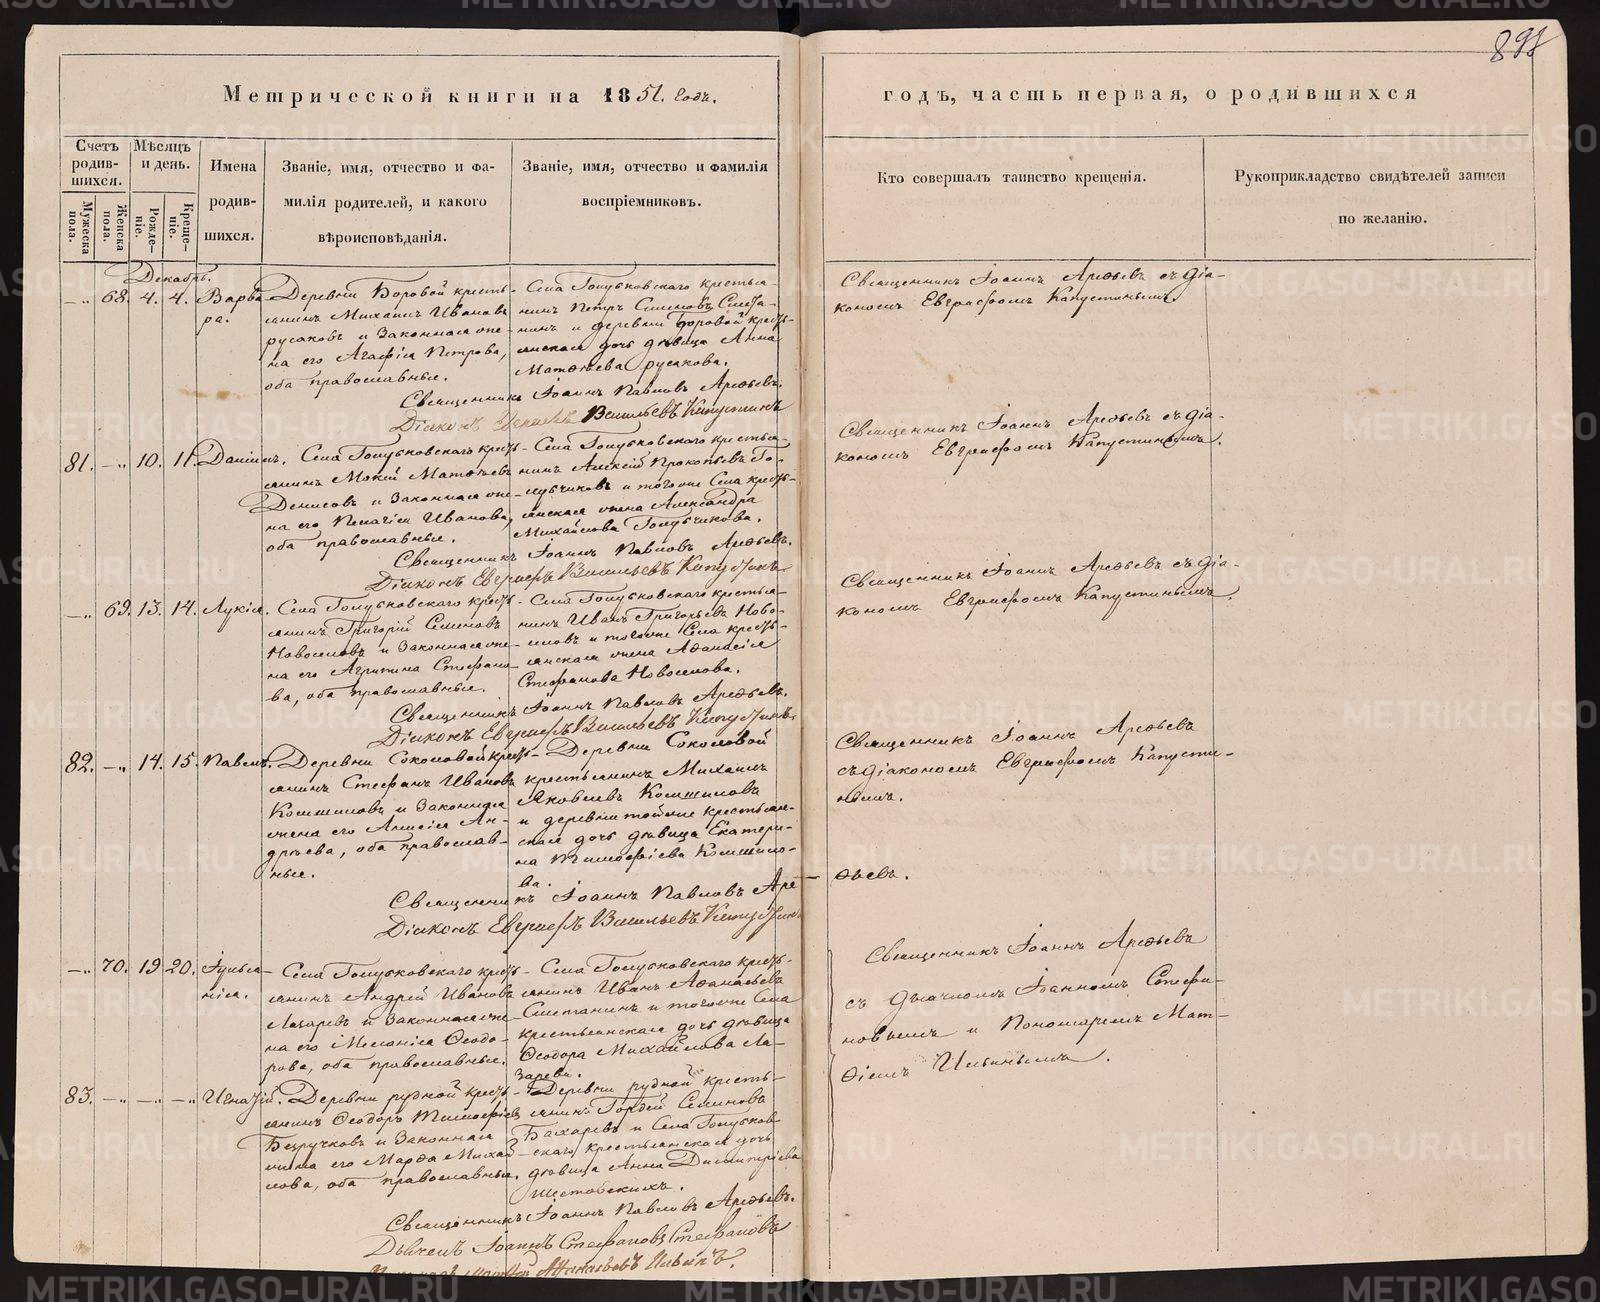 898
Метрической книги на 1851. годъ.
годъ, часть первая, о родившихся
Счетъ родившихся.
Мужеска пола.
Женска пола.
Мѣсяцъ и день.
Рожденіе.
Крещеніе.
Имена родившихся.
Званіе, имя, отчество и фамилія родителей, и какого вѣроисповѣданія.
Званіе, имя, отчество и фамилія воспріемниковъ.
Кто совершалъ таинство крещенія.
Рукоприкладство свидѣтелей записи по желанію.
Декабрь.
68. 4. 4. Варва-
ра.
Деревни Боровой кресть-
янинъ Михаилъ Ивановъ
русаковъ и законная же-
на его Агафія Петрова,
оба православные.
Села Голубковскаго крестья-
нинъ Петръ Семеновъ Смета-
нинъ и деревни Боровой кресть-
янская дочь дѣвица Анна
Матѳѣева русакова.
Священникъ Іоаннъ Арефьевъ съ діа-
кономъ Евграфомъ Капустинымъ.
Священникъ Іоаннъ Павловъ Арефьевъ.
Діаконъ Васильевъ Капустинъ
81. 10. 11. Даніилъ.
Села Голубковскаго кресть-
янинъ Мокій Матѳѣевъ
Денисовъ и законная же-
на его Пелагія Иванова,
оба православные.
Села Голубковскаго крестья-
нинъ Алексій Прокопьевъ Го-
лубчиковъ и тогоже села кресть-
янская жена Александра
Михайлова Голубчикова.
Священникъ Іоаннъ Арефьевъ съ діа-
кономъ Евграфомъ Капустинымъ.
Священникъ Іоаннъ Павловъ Арефьевъ.
Діаконъ Евграфъ Васильевъ Капустинъ
69. 13. 14. Лукія.
Села Голубковскаго кресть-
янинъ Григорій Семеновъ
Новоселовъ и законная же-
на его Агрипина Стефано-
ва, оба православные.
Села Голубковскаго крестья-
нинъ Иванъ Григорьевъ Ново-
селовъ и тогоже села кресть-
янская жена Афанасія
Стефанова Новоселова.
Священникъ Іоаннъ Арефьевъ съ діа-
кономъ Евграфомъ Капустинымъ.
Священникъ Іоаннъ Павловъ Арефьевъ.
Діаконъ Евграфъ Васильевъ Капустинъ.
82. 14. 15. Павелъ.
Деревни Соколовой кресть-
янинъ Стефанъ Ивановъ
Комшиловъ и законная
жена его Анисія Ан-
дрѣева, оба православ-
ные.
Деревни Соколовой
крестьянинъ Михаилъ
Яковлевъ Комшиловъ
и деревни тойже крестьян-
ская дочь дѣвица Екатери-
на Тимофіева Комшило-
ва.
Священникъ Іоаннъ Арефьевъ
съ діакономъ Евграфомъ Капусти-
нымъ.
Священникъ Іоаннъ Павловъ Аре-
фьевъ.
Діаконъ Евграфъ Васильевъ Капустинъ
70. 19 20. Іуліа-
нія.
Села Голубковскаго кресть-
янинъ Андрей Ивановъ
Лазаревъ и законная же-
на его Меланія Ѳеодо-
рова, оба православные.
Села Голубковскаго кресть-
янинъ Иванъ Афанасьевъ
Сметанинъ и тогоже села
крестьянская дочь дѣвица
Ѳеодора Михайлова Ла-
зарева.
Священникъ Іоаннъ Арефьевъ
съ дьячкомъ Іоанномъ Стефа-
новымъ и Пономаремъ Мат-
ѳіемъ Ильинымъ.
83. Игнатій.
Деревни рудной кресть-
янинъ Ѳеодоръ Тимофіевъ
Безручковъ и законная
жена его Марѳа Михай-
лова, оба православные.
Деревни рудной кресть-
янинъ Гордей Семеновъ
Бахаревъ и села Голубков-
скаго крестьянская дочь
дѣвица Анна Димитріева
Священникъ Іоаннъ Павловъ Арефьевъ.
Дьячекъ Іоаннъ Стефановъ Стефановъ
Афанасьевъ Ильинъ.